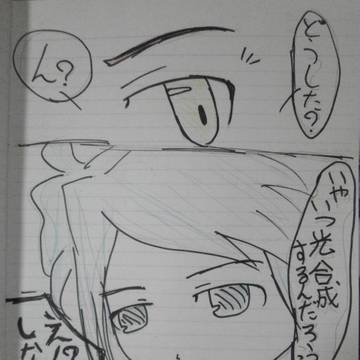 どうした?
ん?
いや
いつ光合成
するんだろう
え!?
しな